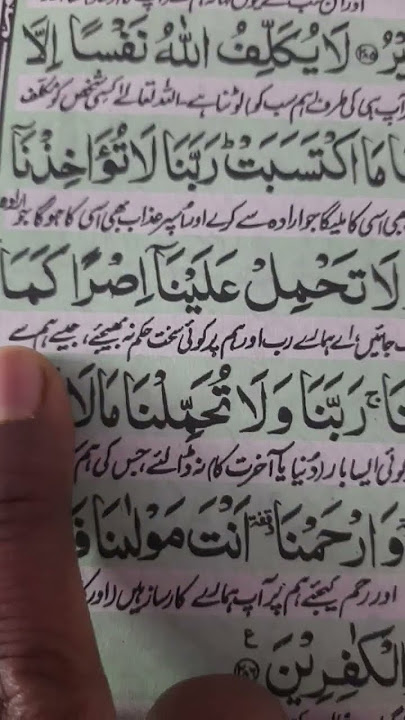 لَا يُكَلِّفُ اللّٰهُ نَفْسًا اِلَّا
آپ ہی کی طرف ہم سب کو لوٹنا ہے، اللہ تعالےٰ کسی شخص کو مکلف
مَا اكْتَسَبَتْ ؕ رَبَّنَا لَا تُؤَاخِذْنَاۤ
بھی اسی کا ملیگا جو ارادہ سے کرے اور اسپر عذاب بھی اسی کا ہوگا جو ارادہ
لَا تَحْمِلْ عَلَيْنَاۤ اِصْرًا كَمَا
جائیں، اے ہمارے رب اور ہم پر کوئی سخت حکم نہ بھیجئے، جیسے ہم سے
ۚ رَبَّنَا وَلَا تُحَمِّلْنَا مَا لَا
کوئی ایسا بار (دنیا یا آخرت کا) نہ ڈالئے، جس کی ہم
وَارْحَمْنَا ۥ اَنْتَ مَوْلٰىنَا
اور رحم کیجئے ہم پر آپ ہمارے کارساز ہیں (اور
الْكٰفِرِيْنَ